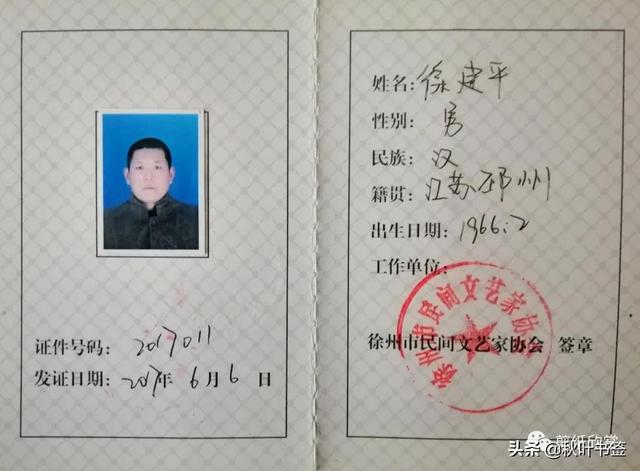 证件号码: 2017011
发证日期: 2017年 6月 6日
姓名: 徐建平
性别: 男
民族: 汉
籍贯: 江苏邳州
出生日期: 1966.2
工作单位:
徐州市民间文艺家协会
徐州市民间文艺家协会 签章
剪纸欣赏
头条@秋叶书签